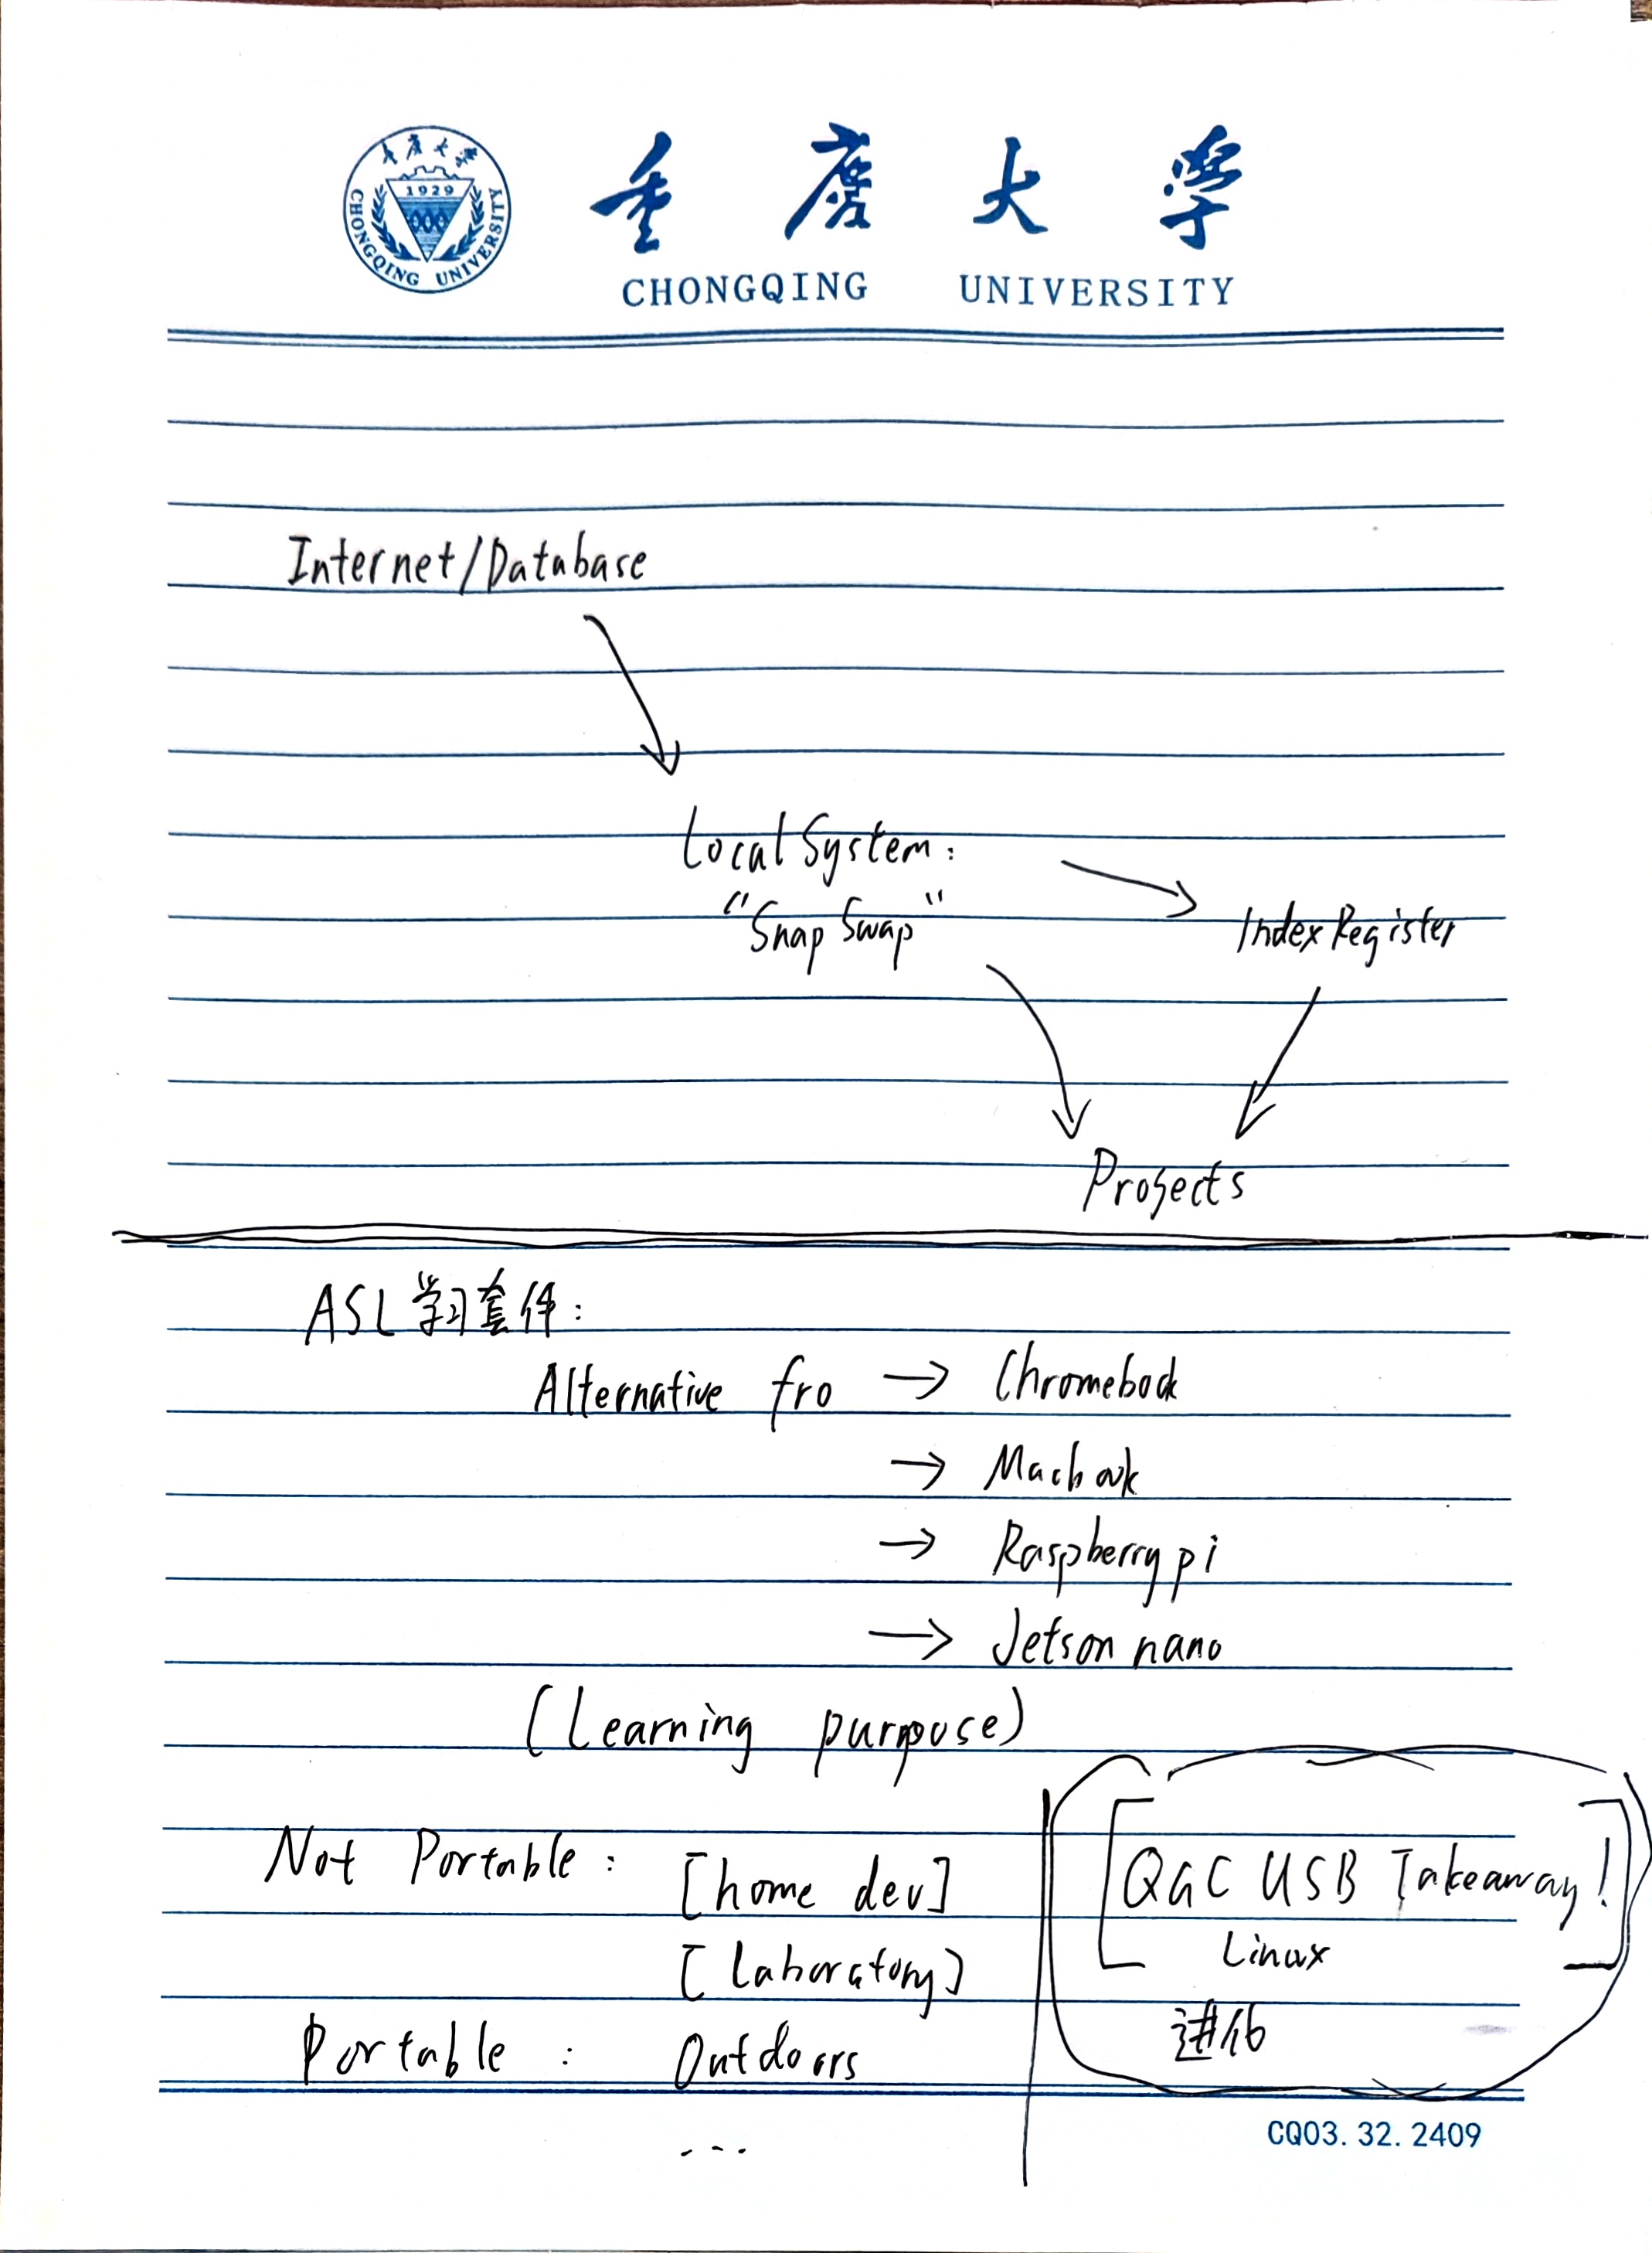 重庆大学
1929
CHONGQING UNIVERSITY
重庆大学
CHONGQING UNIVERSITY
Internet/Database
Local System:
"Snap Swap"
Index Register
Projects
ASL学习套件:
Alternative fro → Chromebook
→ Macbook
→ Raspberry pi
→ Jetson nano
(Learning purpouse)
Not Portable: [home dev]
[Laboratory]
Portable: Outdoors
...
[QGC USB Takeaway!
Linux]
进化
CQ03.32.2409